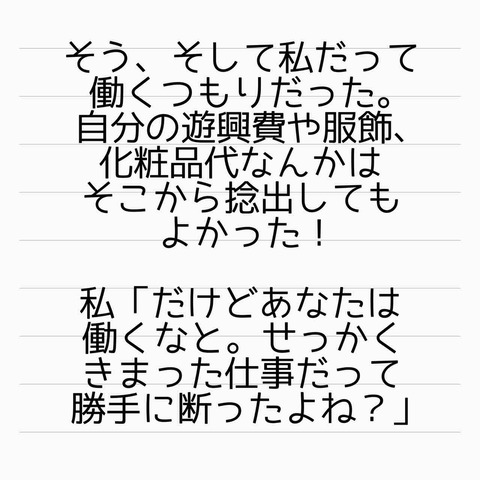 そう、そして私だって
働くつもりだった。
自分の遊興費や服飾、
化粧品代なんかは
そこから捻出しても
よかった！
私「だけどあなたは
働くなと。せっかく
きまった仕事だって
勝手に断ったよね？」